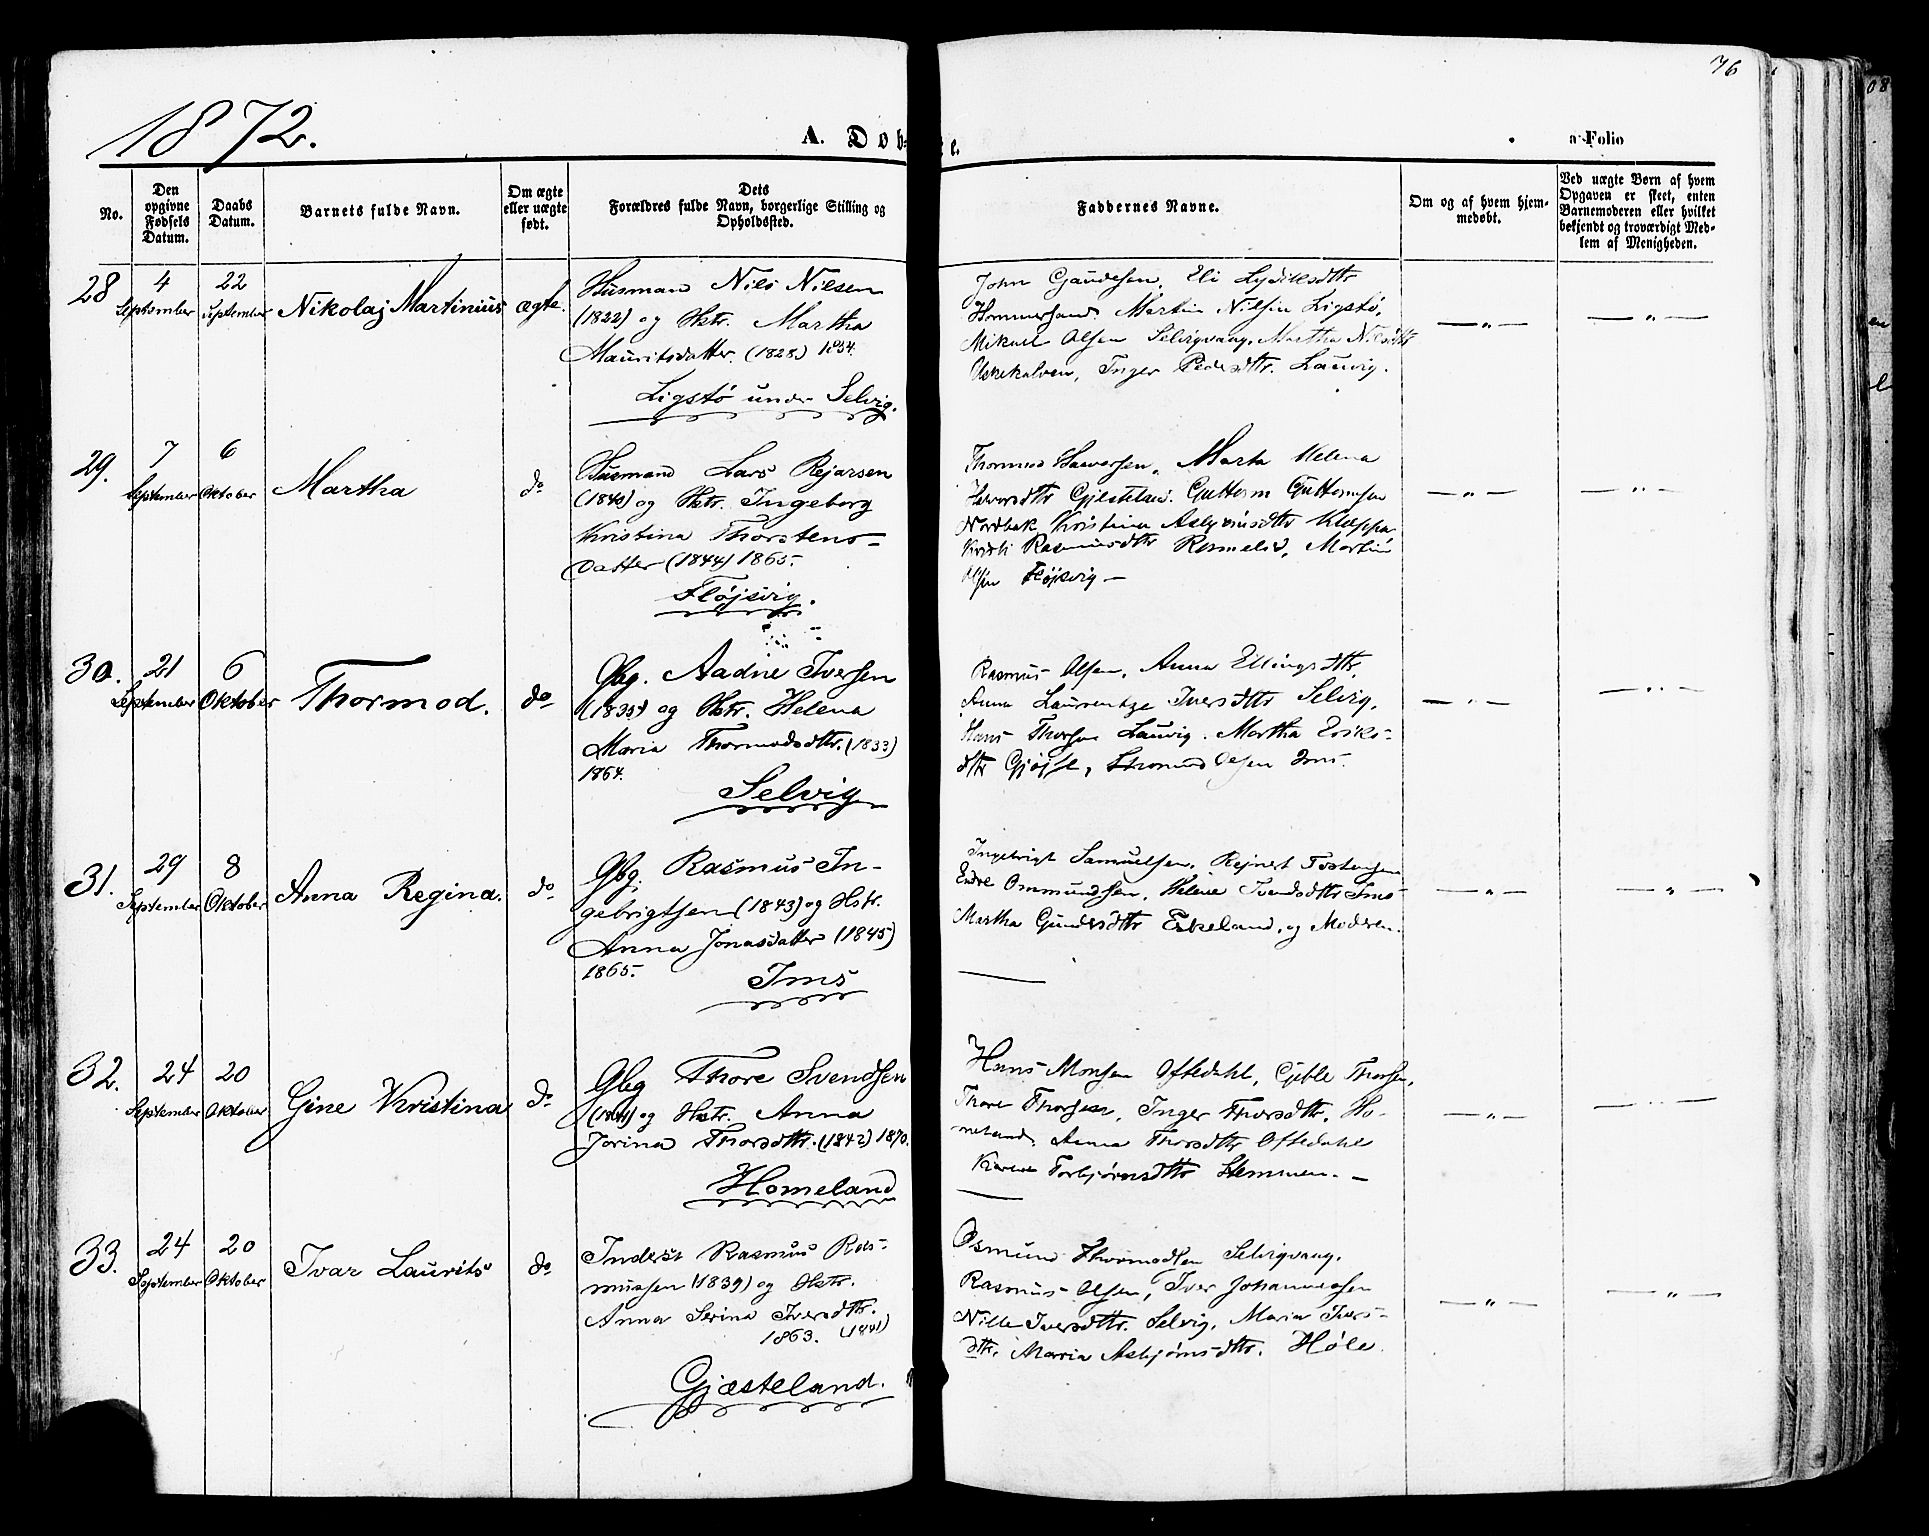 76
1872.
A. Dob
e.
Folio
No.
Den opgivne Fødsels Datum.
Daabs Datum.
Barnets fulde Navn.
Om ægte eller uægte født.
Dets
Forældres fulde Navn, borgerlige Stilling og Opholdssted.
Faddernes Navne.
Om og af hvem hjem-
medøbt.
Ved uægte Børn af hvem
Opgaven er skeet, enten
Barnemoderen eller hvilket
bekjendt og troværdigt Med-
lem af Menigheden.
28
4 September
22 September
Nikolaj Martinius
ægte.
Husmand Nils Nilsen
(1822) og Hstr. Martha
Mauritsdatter. (1828) 1854.
Ligstø under Selvig.
John Gaudesen, Eli
Hommersand. Martin Nilsen Ligstø,
Mikael Olsen Selvigvaag, Martha Nilsdtr
Uskekalven, Inger Pedersdtr. Lauvig.
29.
7 September
6 Oktober
Martha
do
Husmand Lars Rejarsen
(1840) og Hstr. Ingeborg
Kristina Thorstens-
datter (1844) 1865.
Fløjsvig.
Thormod Haaversen, Marta Helena
Haaversdtr Gjesteland. Guttorm Guttormsen
Nordbak Kristina Asbjørnsdtr Kleppa
Kristi Rasmusdtr Romelid, Martin
Olsen Fløjsvig -
30.
21 September
6 Oktober
Thormod.
do
Gbg. Aadne Iversen
(1835) og Hstr. Helena
Maria Thormodsdtr. (1833)
1864.
Selvig
Rasmus Olsen, Anna Ellingsdtr,
Anna Laurentze Iversdtr Selvig,
Hans Thorsen Lauvig. Martha Eriks-
dtr Gjøjse, Thormod Olsen Ims.
31.
29 September
8 Oktober
Anna Regina.
do
Gbg. Rasmus In-
gebrigtsen (1843) og Hstr.
Anna Jonasdatter (1845)
1865.
Ims
Ingebrigt Samuelsen, Rejnert Tostensen
Endre Ommundsen, Helene Svendsdtr Ims
Martha Gundersdtr Eskeland, og Moderen.
32.
24 September
20 Oktober
Gine Kristina
do
Gbg Thore Svendsen
(1844) og Hstr. Anna
Jorina Thorsdtr. (1842) 1870.
Homeland
Hans Monsen Oftedahl, Gjeble Thorsen,
Thore Thorsen, Inger Thorsdtr. Ho-
meland. Anna Thorsdtr Oftedahl
Karen Torbjørnsdtr Stemmen. -
33.
24 September
20 Oktober
Ivar Laurits
do
Inderst Rasmus Ras-
mussen (1839) og Hstr.
Anna Serina Iversdtr.
1863. (1841)
Gjæsteland.
Osmund Thormodsen Selvigvaag.
Rasmus Olsen, Iver Johannessen
Nille Iversdtr. Selvig, Maria Ivers-
dtr. Marria Asbjørnsdtr. Høle